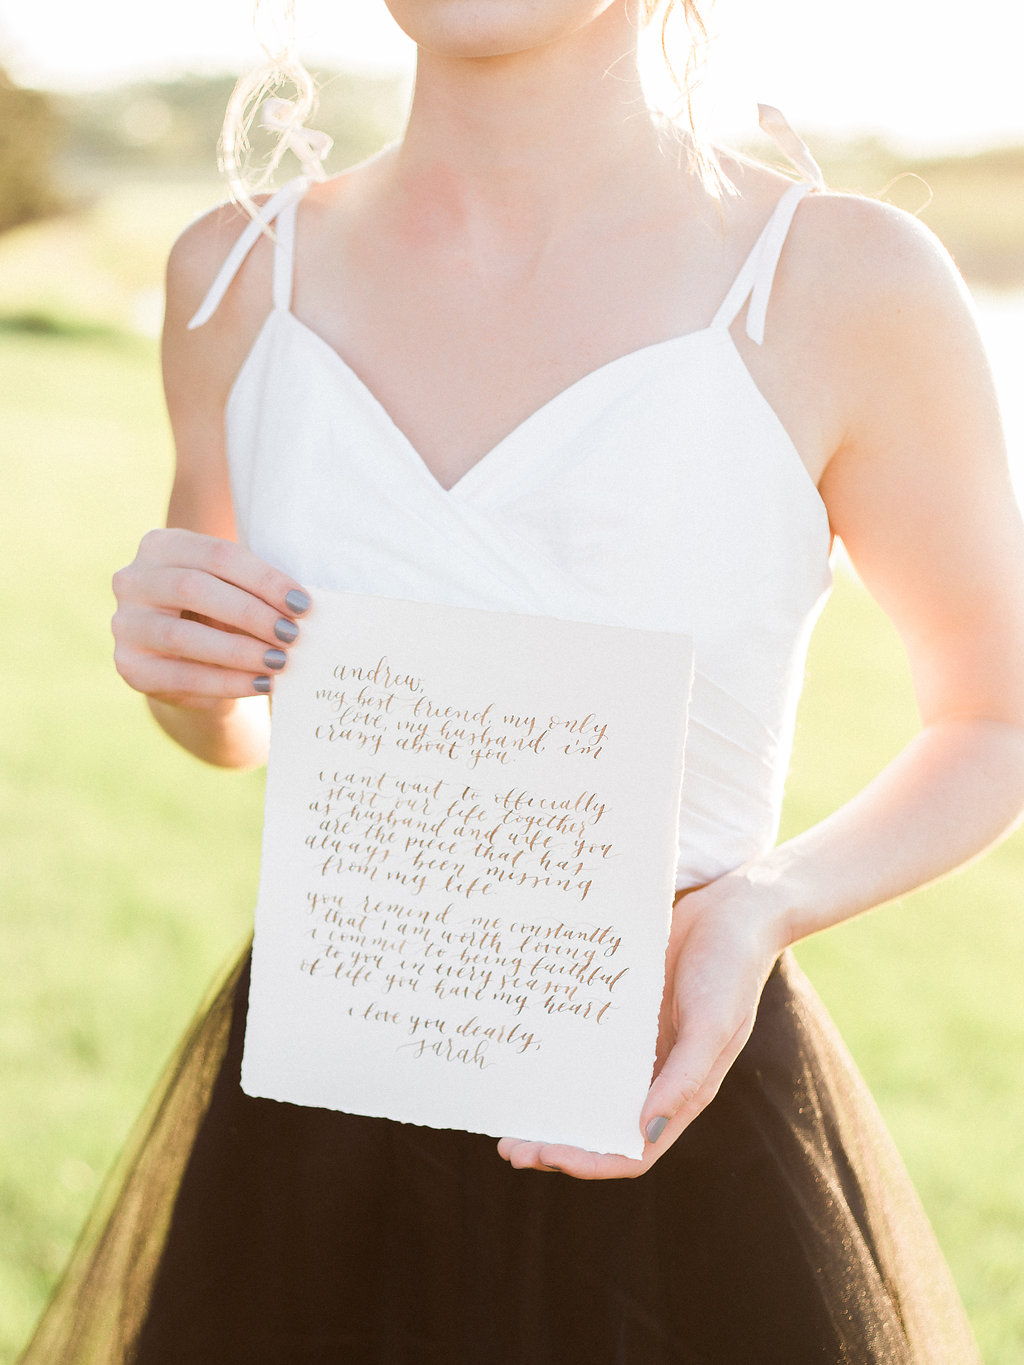 andrew,
my best friend, my only
love, my husband, i'm
crazy about you.
i cant wait to officially
start our life together
as husband and wife. you
are the piece that has
always been missing
from my life
you remind me constantly
that i am worth loving
i commit to being faithful
to you in every season
of life you have my heart.
i love you dearly,
sarah